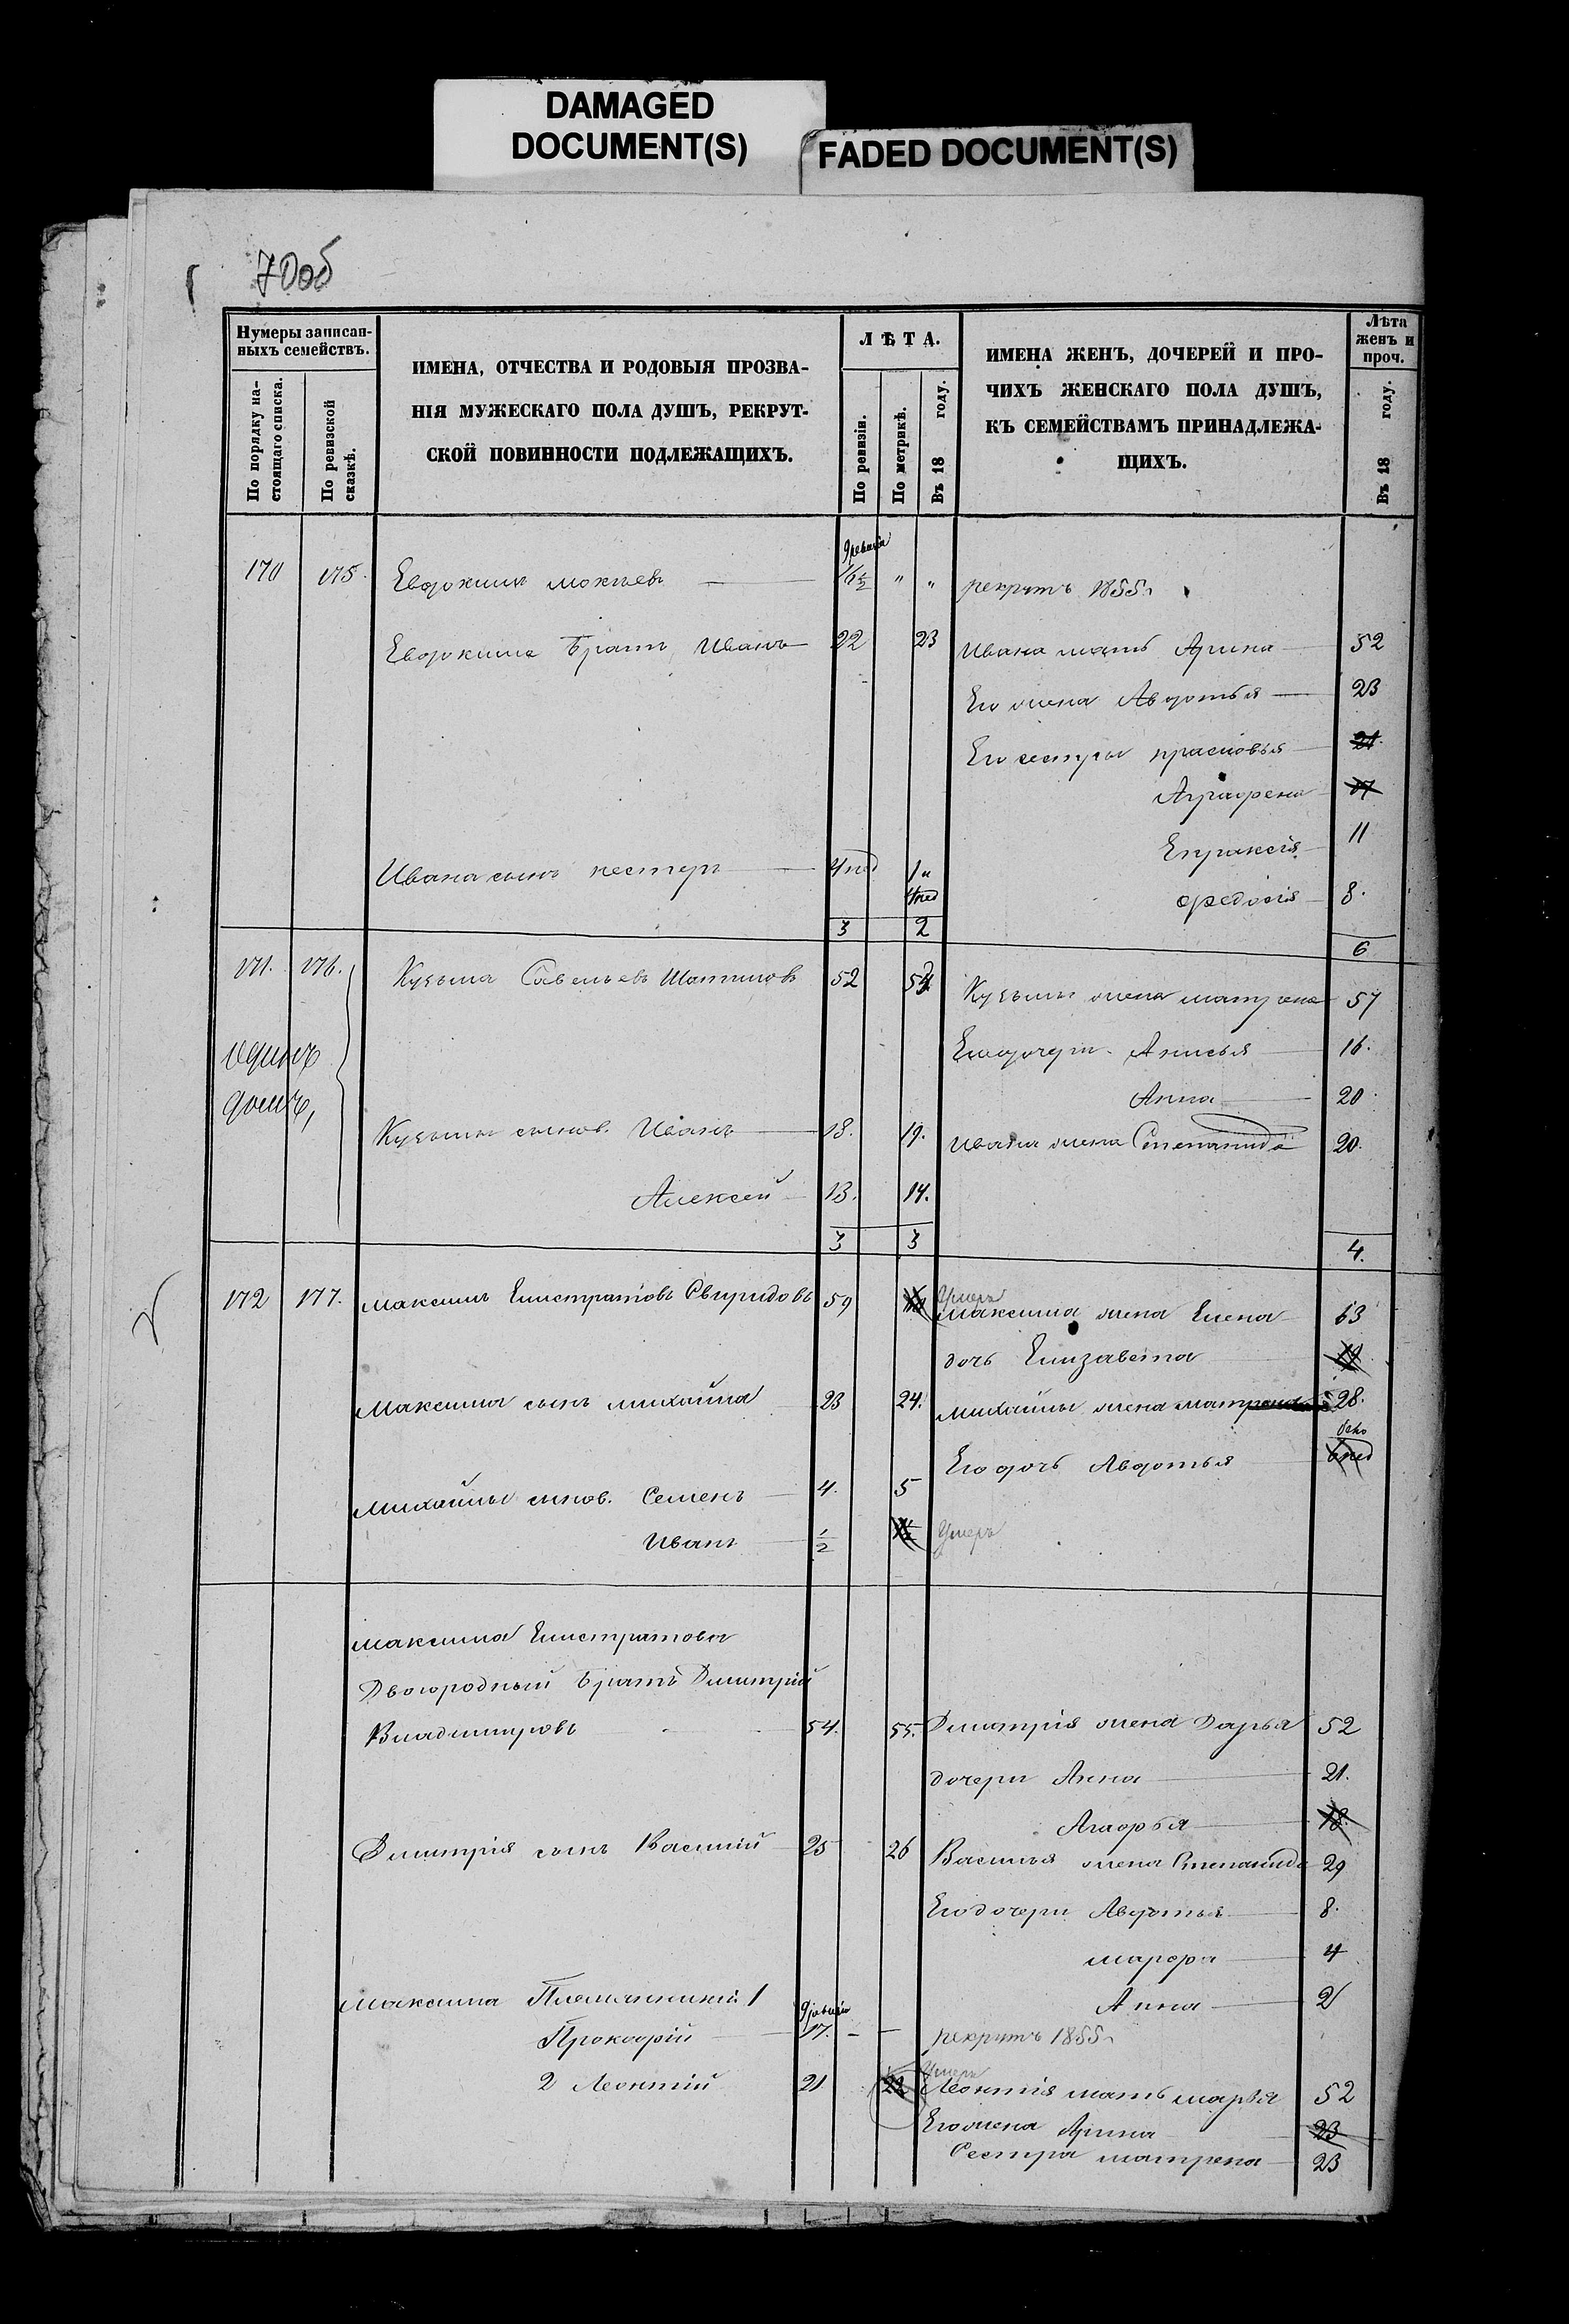 DAMAGED
DOCUMENT(S)
FADED DOCUMENT(S)
70об
Нумеры записан-
ныхъ семействъ.
По порядку на-
стоящаго списка.
По ревизской
сказкѣ.
ИМЕНА, ОТЧЕСТВА И РОДОВЫЯ ПРОЗВА-
НІЯ МУЖЕСКАГО ПОЛА ДУШЪ, РЕКРУТ-
СКОЙ ПОВИННОСТИ ПОДЛЕЖАЩИХЪ.
ЛѢТА.
По ревизіи.
По метрикѣ.
Въ 18 году.
ИМЕНА ЖЕНЪ, ДОЧЕРЕЙ И ПРО-
ЧИХЪ ЖЕНСКАГО ПОЛА ДУШЪ,
КЪ СЕМЕЙСТВАМЪ ПРИНАДЛЕЖА-
ЩИХЪ.
Лѣта
женъ и
проч.
Въ 18 году.
9 ревизіи
170 175. Евдокимъ Мокѣевъ „ „ рекрутъ 1855г
Евдокима братъ Иванъ 22 23 Ивана мать Арина 52
Его жена Авдотья 23
Его сестры Прасковья 21.
Аграфена 17
Епраксія 11
Ивана сынъ Нестеръ 4 нед 1 „
4 нед
Федосія 8.
3 2
6
171. 176. Кузьма Савельевъ Шатиловъ 52 Кузьмы жена Матрена 57
одинъ
домъ,
Его дочери Анисья 16.
Анна 20.
Кузьмы сынов. Иванъ 18. 19. Ивана жена Степанида 20.
Алексей 13. 14.
3 3
4.
172 177. Максимъ Елистратовъ Свиридовъ 59
Умеръ
Максима жена Елена 63
дочь Елизавета
Максима сынъ Михайла 23 24. Михайлы жена Матрена 28.
Его дочь Авдотья 6 нед
Михайлы сынов. Семенъ 4. 5
Иванъ 1/2 Умеръ
Максима Елистратова
Двоюродный братъ Дмитрій
Владимировъ 54. 55. Дмитрія жена Дарья 52
дочери Анна 21.
Агафья 18.
Дмитрія сынъ Василій 25 26 Василья жена Степанида 29
Его дочери Авдотья 8.
Марфа 4
Анна 2
Максима Племянники 1
9 ревизіи
Прокофій 17. – – рекрутъ 1855г
Умеръ
2 Леонтій 21 22 Леонтія мать Марья 52
Его жена Арина 23
Сестра Матрена 23